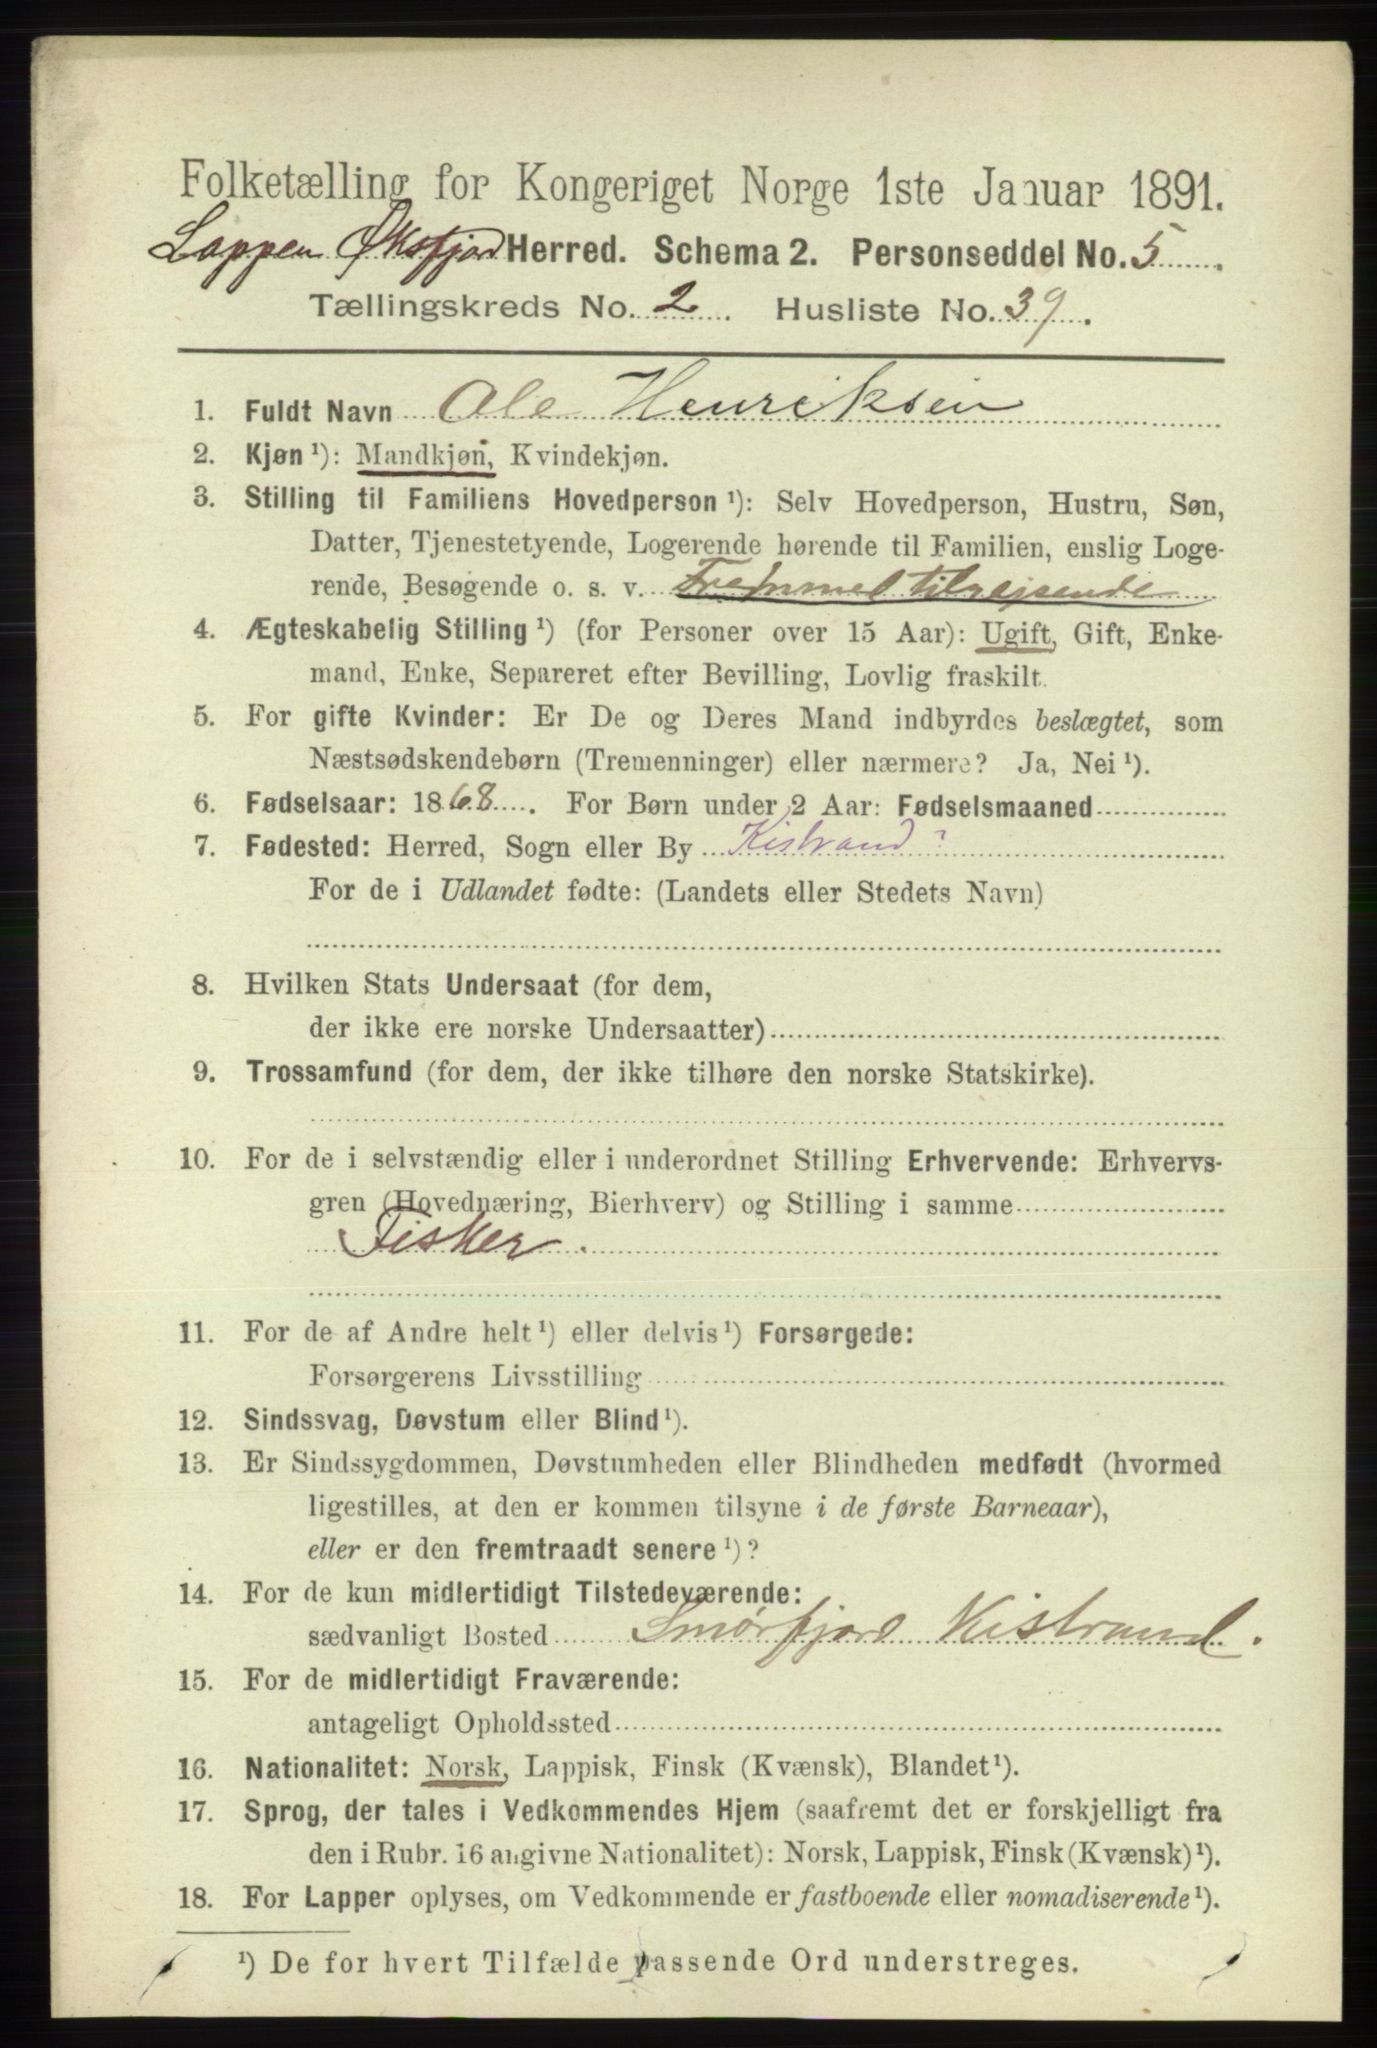 Folketælling for Kongeriget Norge 1ste Januar 1891.
Loppen Øksfjord Herred. Schema 2. Personseddel No. 5
Tællingskreds No. 2. Husliste No. 39.
1. Fuldt Navn Ole Henriksen
2. Kjøn ¹): Mandkjøn, Kvindekjøn.
3. Stilling til Familiens Hovedperson ¹): Selv Hovedperson, Hustru, Søn,
Datter, Tjenestetyende, Logerende hørende til Familien, enslig Loge-
rende, Besøgende o. s. v. Fremmed tilrejsende
4. Ægteskabelig Stilling ¹) (for Personer over 15 Aar): Ugift, Gift, Enke-
mand, Enke, Separeret efter Bevilling, Lovlig fraskilt.
5. For gifte Kvinder: Er De og Deres Mand indbyrdes beslægtet, som
Næstsødskendebørn (Tremenninger) eller nærmere? Ja, Nei ¹).
6. Fødselsaar: 1868. For Børn under 2 Aar: Fødselsmaaned
7. Fødested: Herred, Sogn eller By Kistrand?
For de i Udlandet fødte: (Landets eller Stedets Navn)
8. Hvilken Stats Undersaat (for dem,
der ikke ere norske Undersaatter)
9. Trossamfund (for dem, der ikke tilhøre den norske Statskirke).
10. For de i selvstændig eller i underordnet Stilling Erhvervende: Erhvervs-
gren (Hovednæring, Bierhverv) og Stilling i samme
Fisker.
11. For de af Andre helt ¹) eller delvis ¹) Forsørgede:
Forsørgerens Livsstilling
12. Sindssvag, Døvstum eller Blind ¹).
13. Er Sindssygdommen, Døvstumheden eller Blindheden medfødt (hvormed
ligestilles, at den er kommen tilsyne i de første Barneaar),
eller er den fremtraadt senere ¹)?
14. For de kun midlertidigt Tilstedeværende:
sædvanligt Bosted Smørfjord Kistrand.
15. For de midlertidigt Fraværende:
antageligt Opholdssted
16. Nationalitet: Norsk, Lappisk, Finsk (Kvænsk), Blandet ¹).
17. Sprog, der tales i Vedkommendes Hjem (saafremt det er forskjelligt fra
den i Rubr. 16 angivne Nationalitet): Norsk, Lappisk, Finsk (Kvænsk) ¹).
18. For Lapper oplyses, om Vedkommende er fastboende eller nomadiserende ¹).
¹) De for hvert Tilfælde passende Ord understreges.